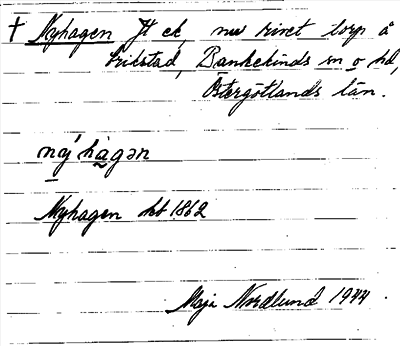 † Nyhagen Jt ek, nu rivet torp å
Brikstad, Bankekinds sn o hd,
Östergötlands län.
nýhàgən
Nyhagen hb 1862
Maja Nordlund 1944